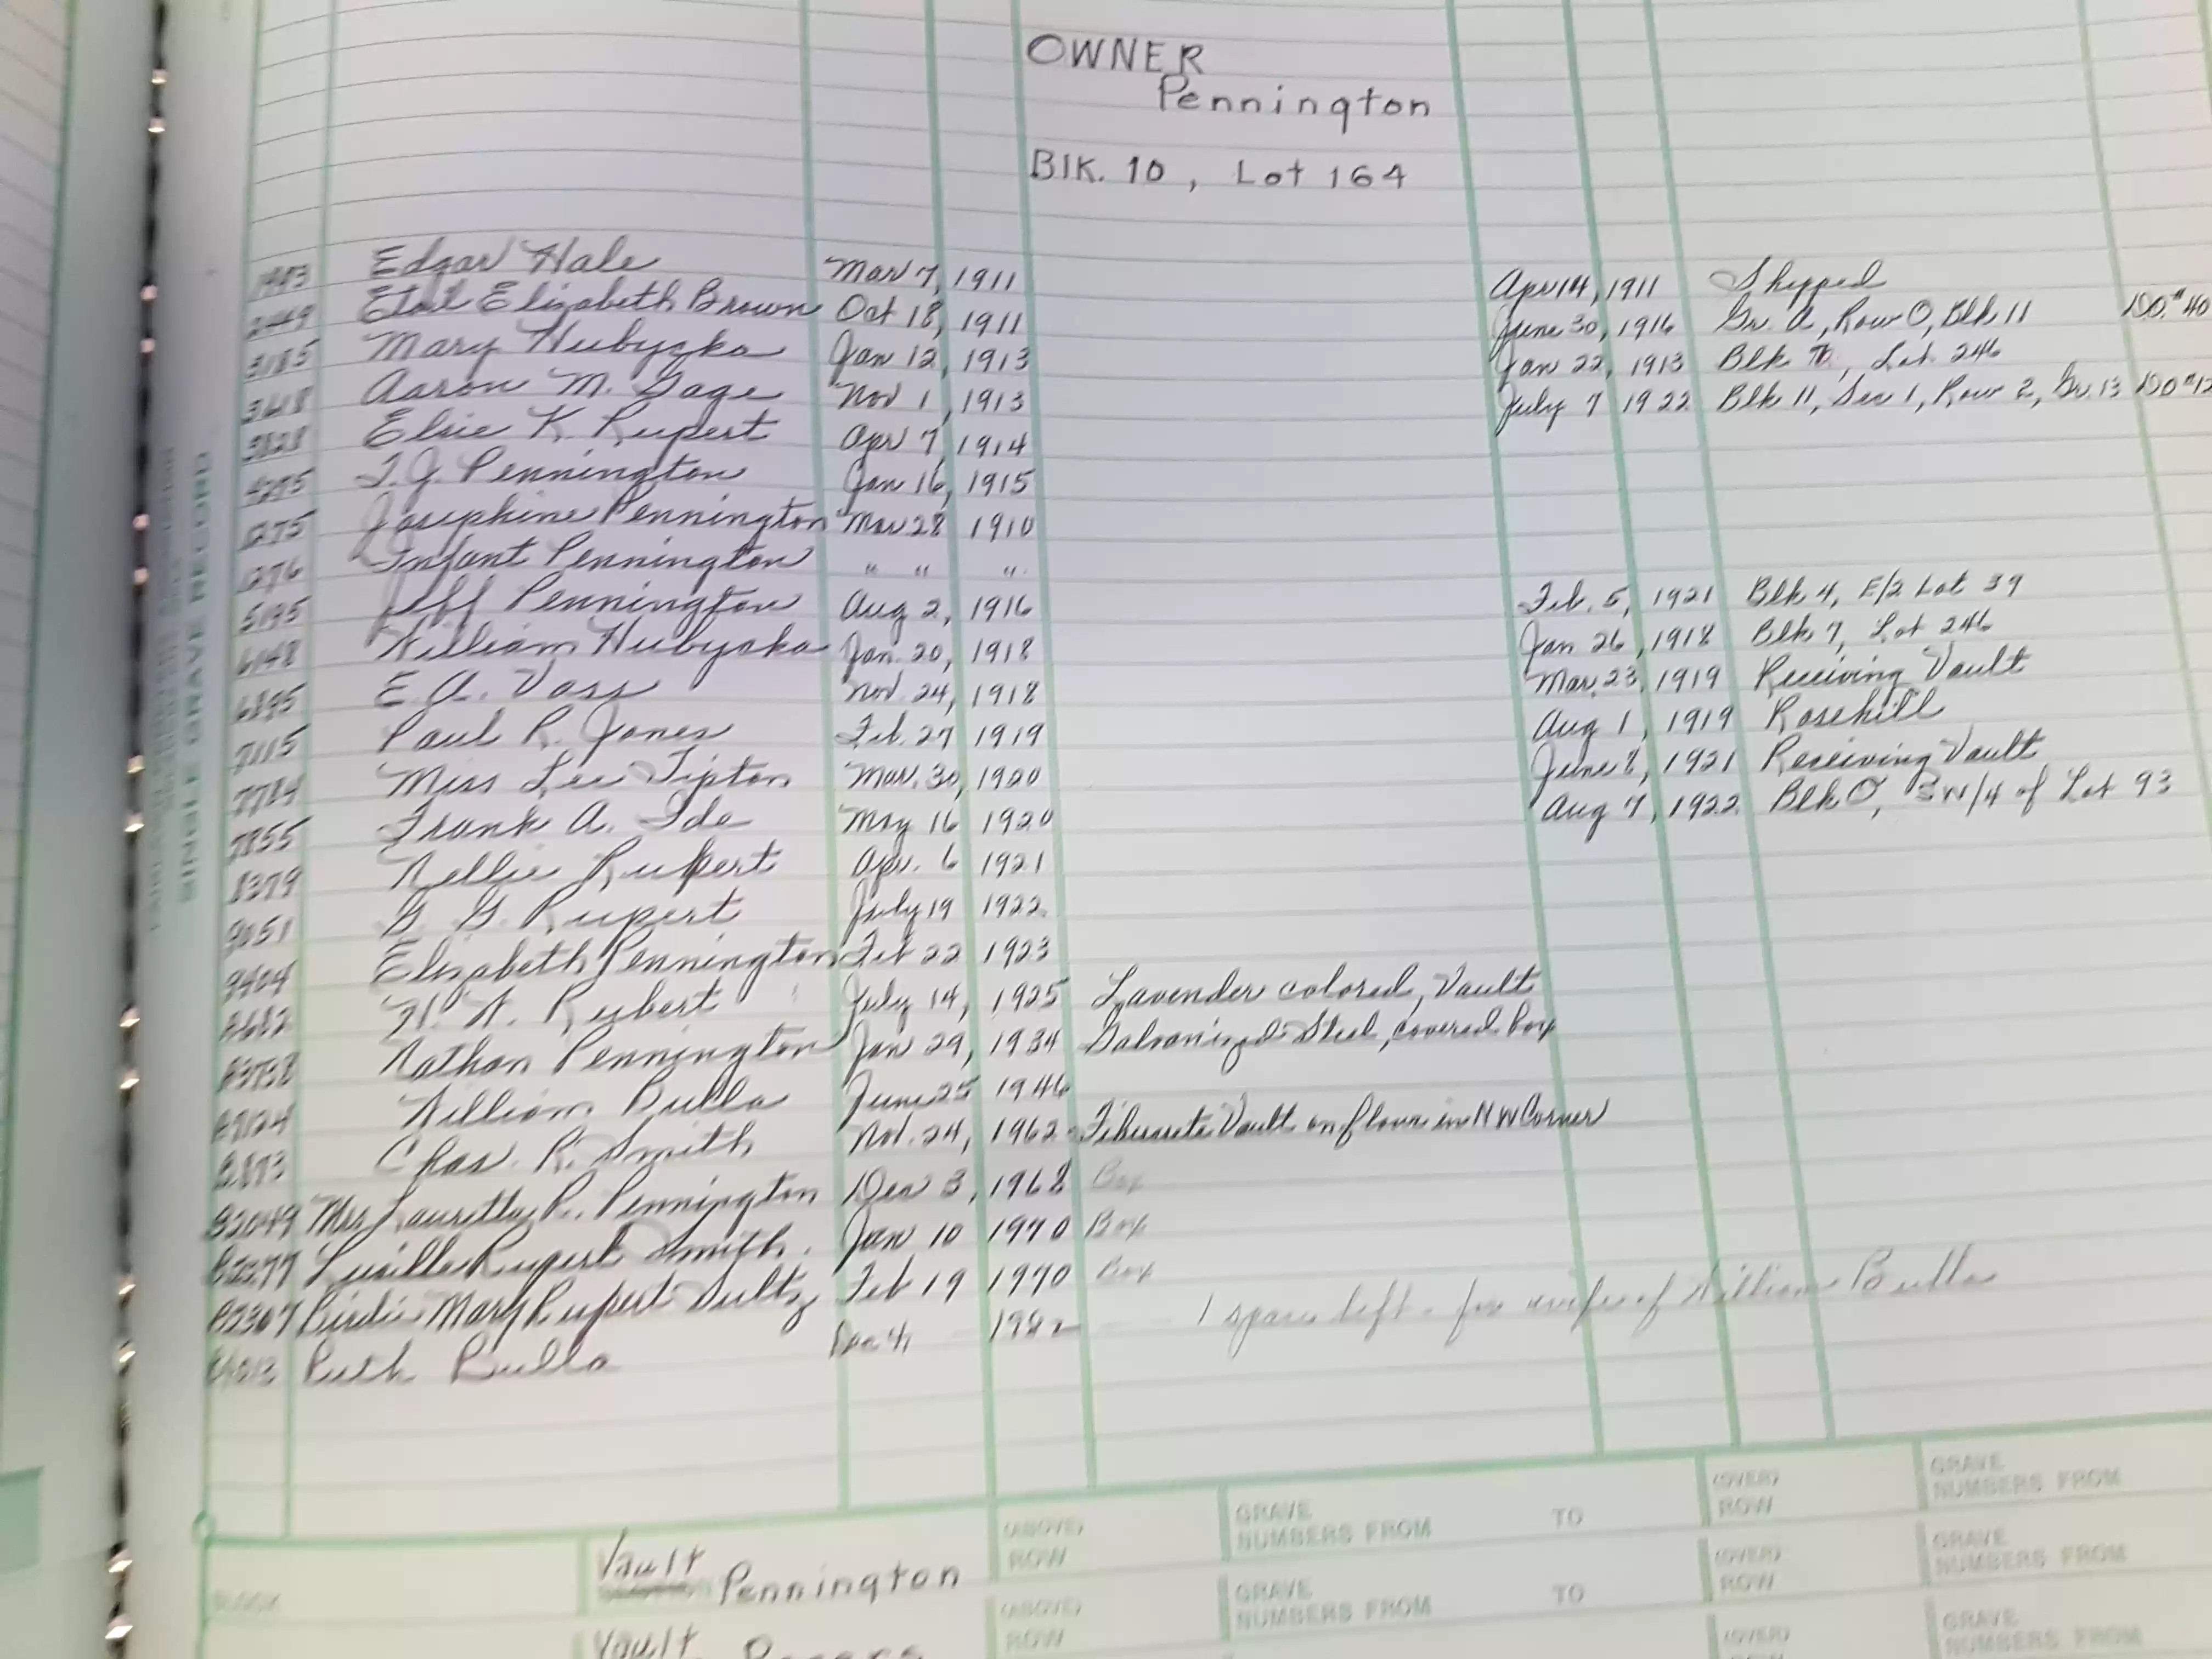 OWNER
Pennington
Blk. 10, Lot 164
1983 Edgar Hale Mar 7, 1911 Apr 14, 1911 Shipped
2449 Elizabeth Brown Oct 18, 1911 June 30, 1916 Gr. A, Row O, Blk 11 DO.#40
3185 Mary Hubyska Jan 12, 1913 Jan 22, 1913 Blk 7, Lot 246
3618 Aaron M. Gage Nov 1, 1913 July 7 1922 Blk 11, Sec 1, Row 2, Gr. 13
3828 Elsie K. Rupert Apr 7, 1914
4295 T. J. Pennington Jan 16, 1915
1275 Josephine Pennington Mar 28 1910
1276 Infant Pennington " " "
5195 Jeff Pennington Aug 2, 1916 Feb. 5, 1921 Blk 4, E/2 Lot 39
6148 William Hubyska Jan. 20, 1918 Jan 26, 1918 Blk 7, Lot 246
6895 E. A. Voss Nov. 24, 1918 Mar. 23, 1919 Receiving Vault
7115 Paul R. Jones Feb. 27 1919 Aug 1, 1919 Rosehill
7784 Miss Lee Tipton Mar. 30, 1920 June 8, 1921 Receiving Vault
7855 Frank A. Ide May 16 1920 Aug 7, 1922 Blk O, SW/4 of Lot 93
8379 Nellie Rupert Apr. 6 1921
9051 G. G. Rupert July 19 1922
9404 Elizabeth Pennington Feb 22 1923
A682 Rubert July 14, 1925 Lavender colored, Vault
A3738 Nathan Pennington Jan 29, 1934 Galvanized Steel, covered box
A9124 William Bulla June 25 1946
B873 Chas. R. Smith Nov. 24, 1962 Vault on floor in NW Corner
B2049 Mrs Lauretta R. Pennington Dec 3, 1968 Box
B2277 Lucille Rupert Smith. Jan 10 1970 Box
B2307 Birdie Mary Rupert Sultz Feb 19 1970 Box
Ruth Bulla Dec 4, 1982 1 space left - for wife of William Bulla
SINGLE GRAVE RECORD
BLOCK Vault Pennington (ABOVE) ROW GRAVE NUMBERS FROM TO (OVER) ROW GRAVE NUMBERS FROM
Vault (ABOVE) ROW GRAVE NUMBERS FROM TO (OVER) ROW GRAVE NUMBERS FROM
(OVER) GRAVE NUMBERS FROM